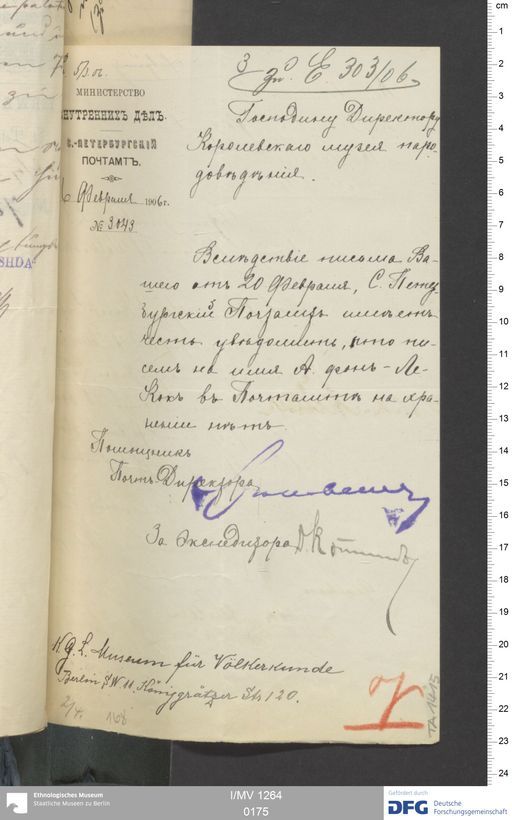 3 zu E. 303/06.
5/3.06.
МИНИСТЕРСТВО
ВНУТРЕННИХЪ ДѢЛЪ.
С.-ПЕТЕРБУРГСКІЙ
ПОЧТАМТЪ.
Февраля 1906 г.
№ 3043
Господину Директору
Королевскаго музея наро-
довѣдѣнія.
Вслѣдствіе письма Ва-
шего отъ 20 Февраля, С. Петер-
бургскій Почтамтъ имѣетъ
честь увѣдомить, что пи-
семъ на имя А. фонъ-Ле-
Кокъ въ Почтамтѣ на хра-
неніи нѣтъ.
Помощникъ
Почтъ Директора
За Экспедитора
K.g.L. Museum für Völkerkunde
Berlin S.W. 11. Königgrätzer Str. 120.
168
TA 1615
SHDA
Ethnologisches Museum
Staatliche Museen zu Berlin
I/MV 1264
0175
Gefördert durch
DFG Deutsche
Forschungsgemeinschaft
cm
1
2
3
4
5
6
7
8
9
10
11
12
13
14
15
16
17
18
19
20
21
22
23
24